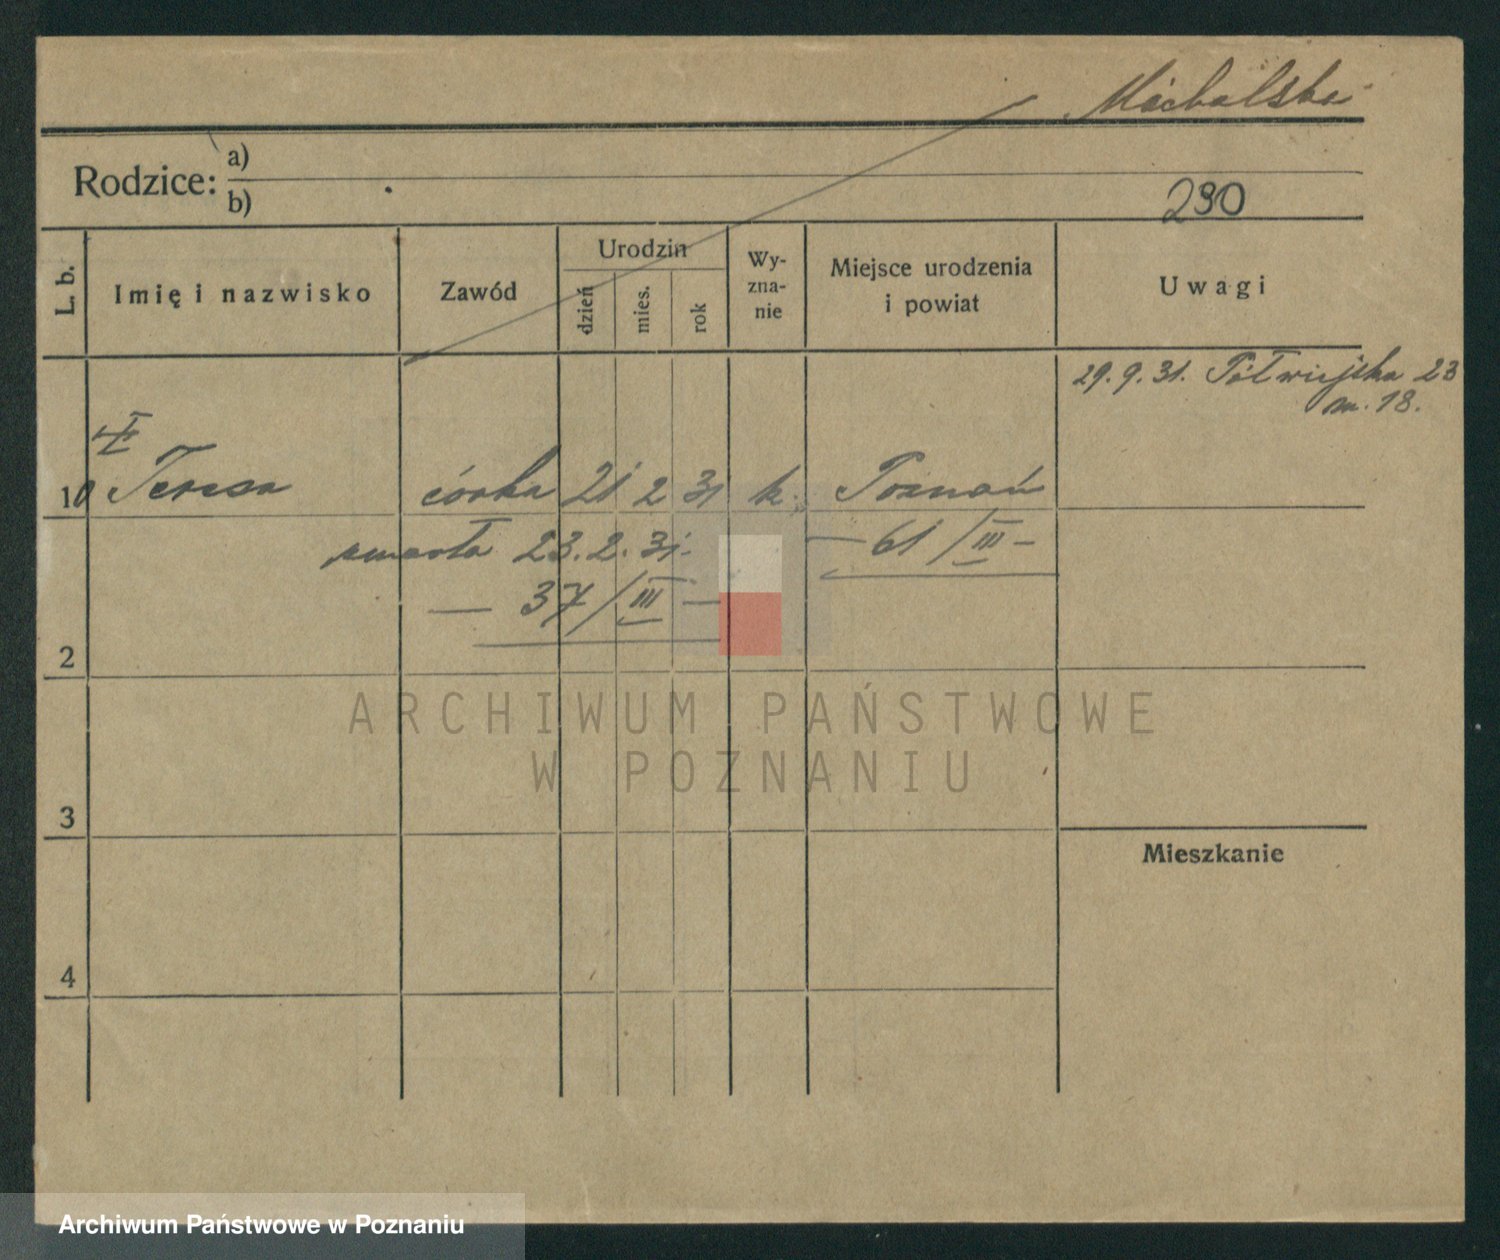 Michalska
Rodzice: a)
b)
230
L. b. Imię i nazwisko Zawód Urodzin dzień mies. rok Wy-zna-nie Miejsce urodzenia i powiat Uwagi
29. 9. 31. Półwiejska 23
m. 18.
10 Teresa córka 21 2 31 k. Poznań
zmarła 23. 2. 31. — 61/III —
— 37/III —
2
3
Mieszkanie
4
ARCHIWUM PAŃSTWOWE
W POZNANIU
Archiwum Państwowe w Poznaniu